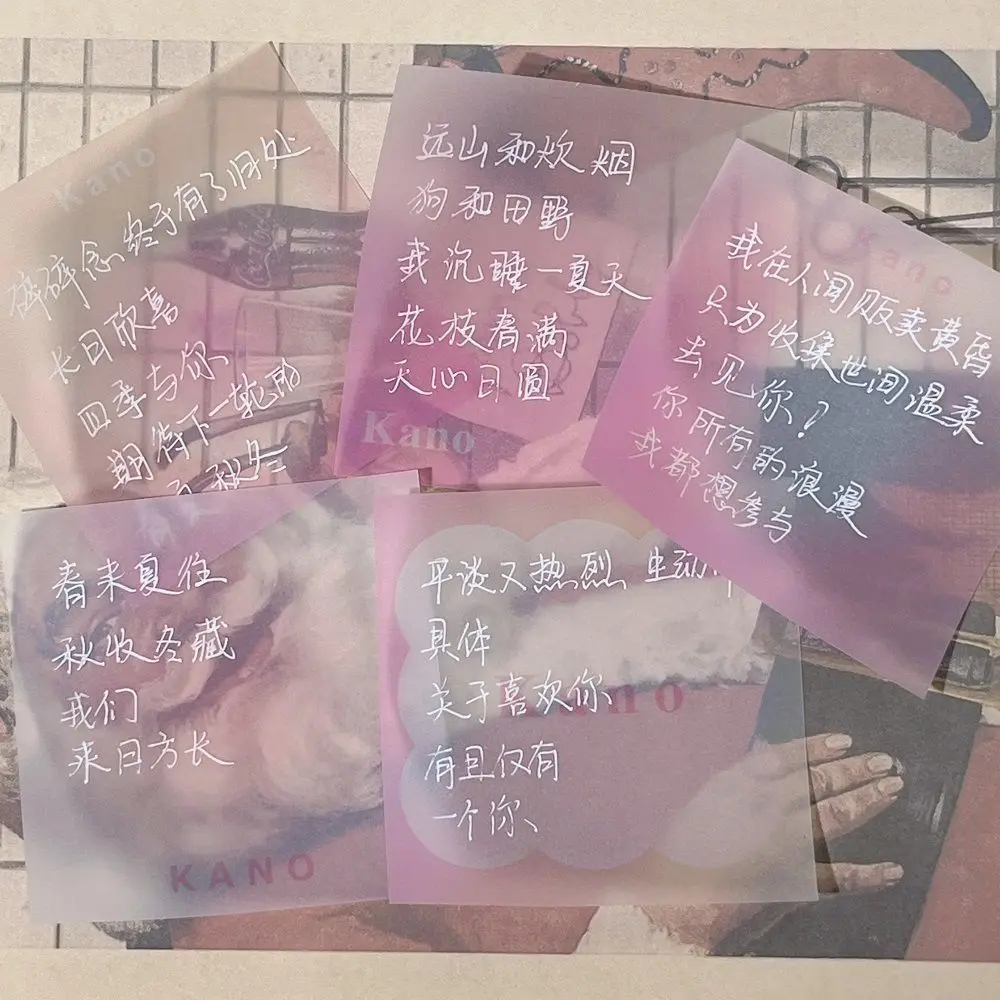 Kano
碎碎念终于有了归处
长日欣喜
四季与你
期待下一轮的
秋冬
远山和炊烟
狗和田野
我沉睡一夏天
花枝春满
天心日圆
Kano
Kano
我在人间贩卖黄昏
只为收集世间温柔
去见你！
你所有的浪漫
我都想参与
春来夏往
秋收冬藏
我们
来日方长
KANO
平淡又热烈 生动
具体
关于喜欢你
有且仅有
一个你